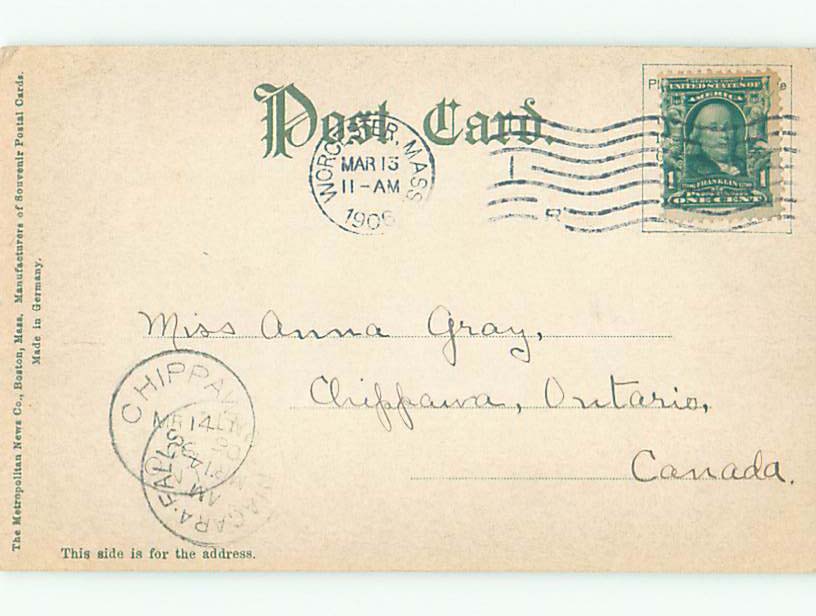 Post Card.
WORCESTER, MASS
MAR 13
11-AM
1906
UNITED STATES OF
AMERICA
1 FRANKLIN 1
ONE CENT
Miss Anna Gray,
Chippawa, Ontario,
Canada.
CHIPPAWA
MR 14
06
NIAGARA FALLS
AM
This side is for the address.
The Metropolitan News Co., Boston, Mass. Manufacturers of Souvenir Postal Cards.
Made in Germany.